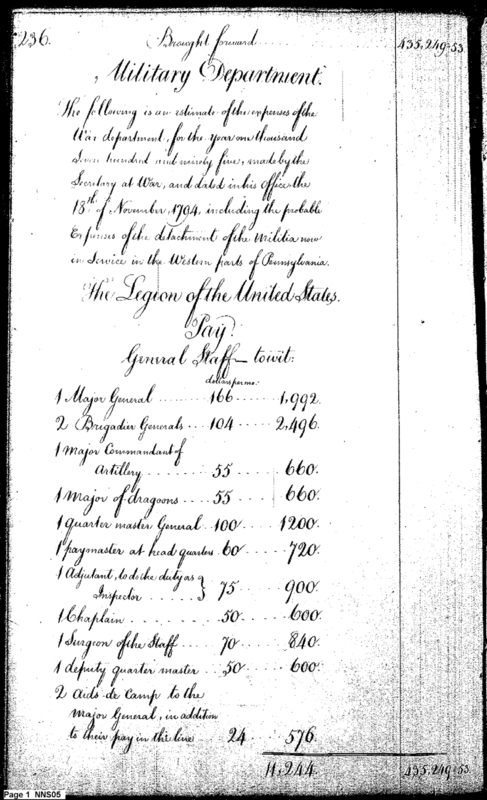 236.
Brought forward 435,249.53
Military Department.
The following is an estimate of the expenses of the
War department, for the year one thousand
seven hundred and ninety five, made by the
Secretary at War, and dated in his Office the
18th of November, 1794, including the probable
Expenses of the detachment of the Militia now
in Service in the Western parts of Pennsylvania.
The Legion of the United States.
Pay.
General Staff — towit:
dollars per mo:
1 Major General 166 1,992.
2 Brigadier Generals 104 2,496.
1 Major Commandant of
Artillery 55 660.
1 Major of dragoons 55 660.
1 quarter master General 100 1200.
1 paymaster at head quarters 60 720.
1 Adjutant, to do the duty as
Inspector 75 900.
1 Chaplain 50 600.
1 Surgeon of the Staff 70 840.
1 deputy quarter master 50 600.
2 Aids-de-Camp to the
Major General, in addition
to their pay in the line 24 576.
11,244. 435,249.53
Page 1 NNS05